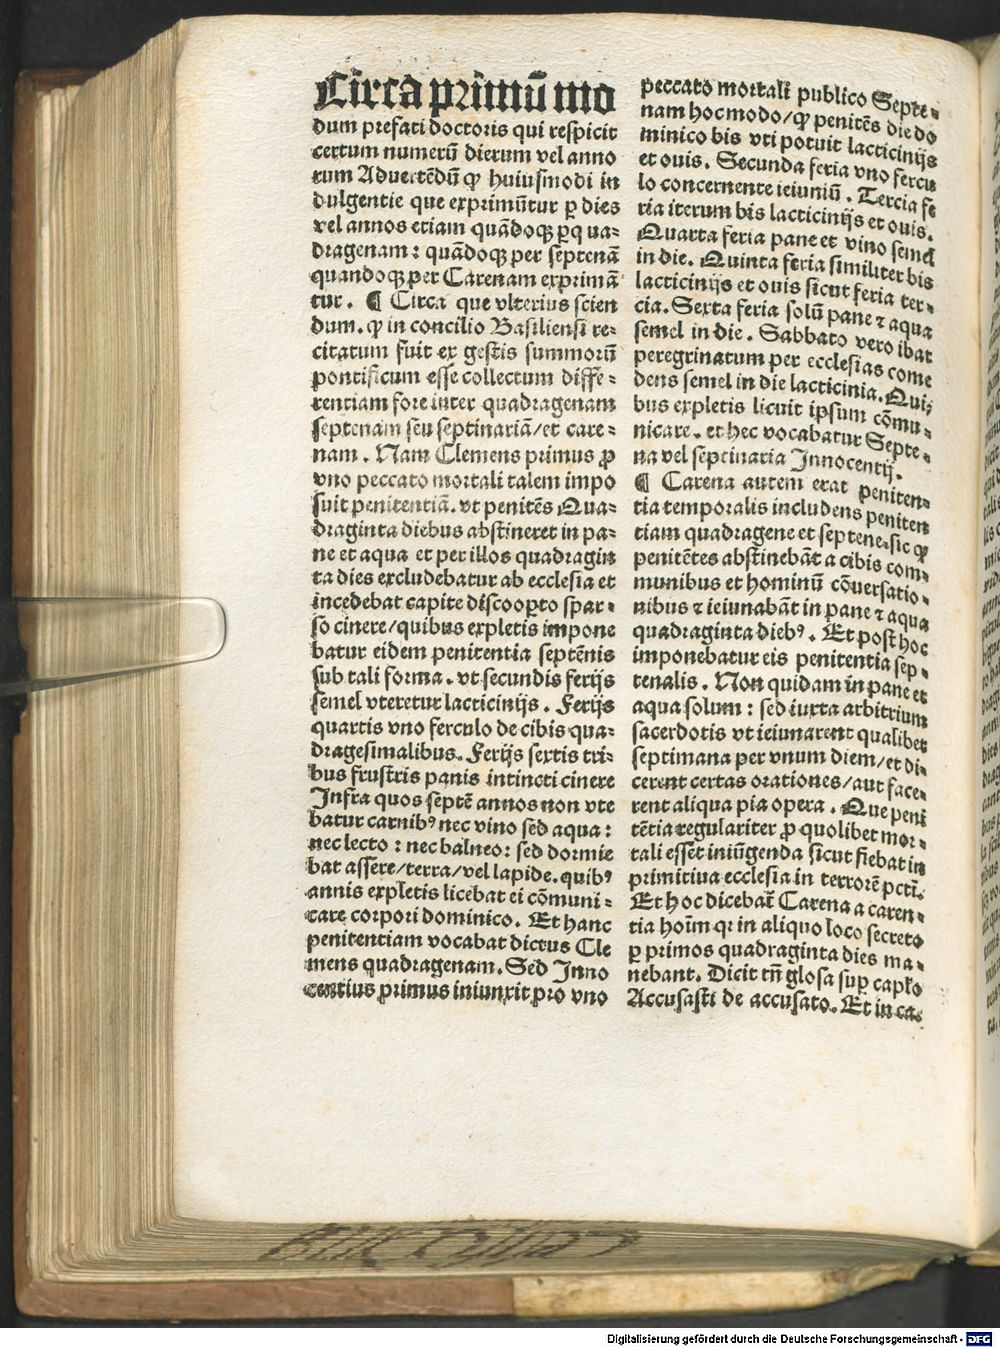 Circa primū mo
dum prefati doctoris qui respicit
certum numerū dierum vel anno
rum Advertēdū ꝙ huiusmodi in
dulgentie que exprimūtur ꝑ dies
vel annos etiam quādoqꝫ ꝑq ua⸗
dragenam: quādoqꝫ per septenā
quandoqꝫ per Carenam exprimā
tur. ¶ Circa que vlterius scien
dum. ꝙ in concilio Basiliensi re⸗
citatum fuit ex gestis summorū
pontificum esse collectum diffe⸗
rentiam fore inter quadragenam
septenam seu septinariā/et care⸗
nam. Nam Clemens primus ꝓ
vno peccato mortali talem impo
suit penitentiā. vt penitēs Qua⸗
draginta diebus abstineret in pa⸗
ne et aqua et per illos quadragin
ta dies excludebatur ab ecclesia et
incedebat capite discooꝑto spar⸗
so cinere/quibus expletis impone
batur eidem penitentia septēnis
sub tali forma. vt secundis ferijs
semel vteretur lacticinijs. Ferijs
quartis vno ferculo de cibis qua⸗
dragesimalibus. Ferijs sextis tri⸗
bus frustris panis intincti cinere
Infra quos septē annos non vte
batur carnibꝰ nec vino sed aqua:
nec lecto: nec balneo: sed dormie
bat assere/terra/vel lapide. quibꝰ
annis expletis licebat ei cōmuni⸗
care corpori dominico. Et hanc
penitentiam vocabat dictus Cle
mens quadragenam. Sed Inno
centius primus iniunxit pro vno
peccato mortali publico Septe⸗
nam hoc modo/ꝙ penitēs die do
minico bis vti potuit lacticinijs
et ouis. Secunda feria vno fercu
lo concernente ieiuniū. Tercia fe
ria iterum bis lacticinijs et ouis.
Quarta feria pane et vino semel
in die. Quinta feria similiter bis
lacticinijs et ouis sicut feria ter⸗
cia. Sexta feria solū pane ⁊ aqua
semel in die. Sabbato vero ibat
peregrinatum per ecclesias come
dens semel in die lacticinia. Qui⸗
bus expletis licuit ipsum cōmu⸗
nicare. et hec vocabatur Septe⸗
na vel septinaria Innocentij.
¶ Carena autem erat peniten⸗
tia temporalis includens peniten
tiam quadragene et septene. sic ꝙ
penitētes abstinebāt a cibis com⸗
munibus et hominū cōversatio⸗
nibus ⁊ ieiunabāt in pane ⁊ aqua
quadraginta diebꝰ. Et post hoc
imponebatur eis penitentia sep⸗
tenalis. Non quidam in pane et
aqua solum: sed iuxta arbitrium
sacerdotis vt ieiunarent qualibet
septimana per vnum diem/et di⸗
cerent certas orationes/aut face⸗
rent aliqua pia opera. Que peni
tētia regulariter ꝓ quolibet mor⸗
tali esset iniūgenda sicut fiebat in
primitiua ecclesia in terrorē pctī.
Et hoc dicebat̄ Carena a caren⸗
tia hoīm qꝛ in aliquo loco secreto
ꝑ primos quadraginta dies ma⸗
nebant. Dicit tn̄ glosa suꝑ capło
Accusasti de accusato. Et in ca⸗
Digitalisierung gefördert durch die Deutsche Forschungsgemeinschaft - DFG